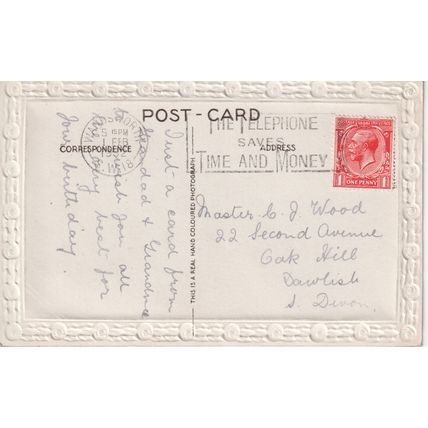 POST-CARD
CORRESPONDENCE
ADDRESS
THE TELEPHONE
SAVES
TIME AND MONEY
1 ONE PENNY 1
THIS IS A REAL HAND COLOURED PHOTOGRAPH
Just a card from
Grandad & Grandma
to wish you all
the very best for
your birthday.
Master C. J. Wood
22 Second Avenue
Oak Hill
Dawlish
S. Devon.